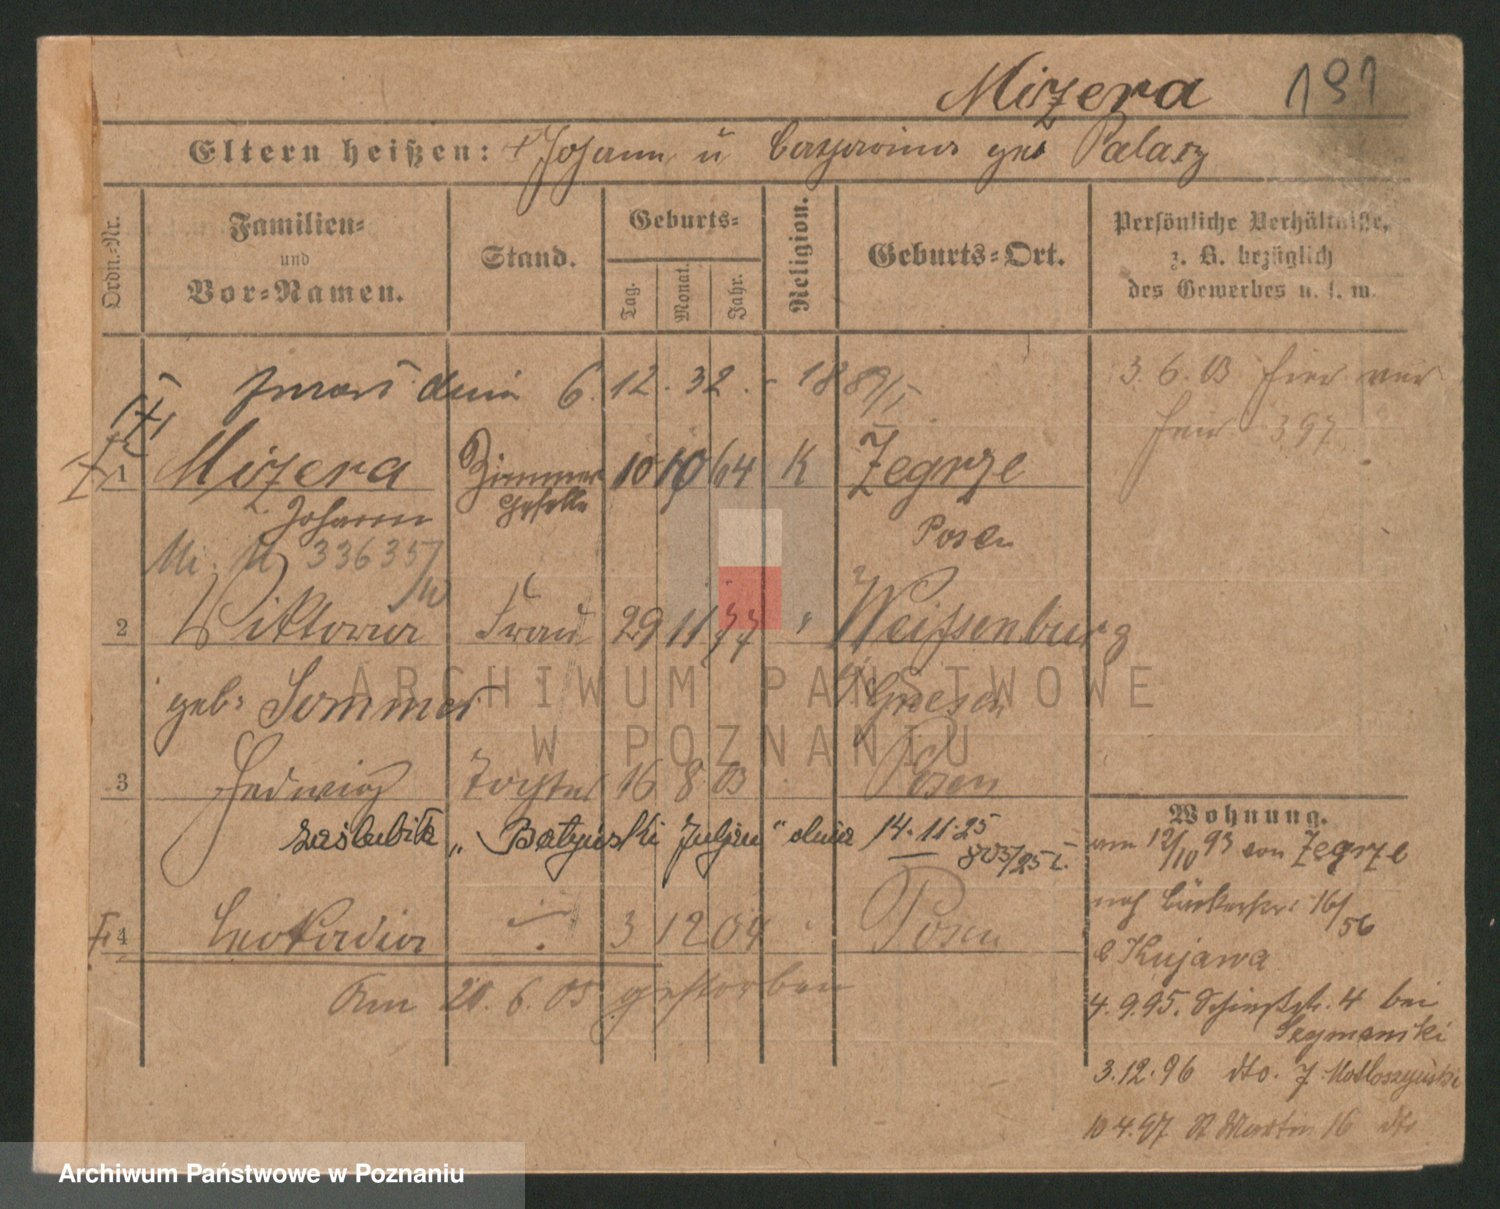 Mizera 191
Eltern heißen: + Johann u Catharina geb Palacz
Ordn.-Nr.
Familien- und Vor-Namen.
Stand.
Geburts-
Tag. Monat. Jahr.
Religion.
Geburts-Ort.
Persönliche Verhältnisse, z. B. bezüglich des Gewerbes u. s. w.
zmarł dnia 6. 12. 32. - 1889/I
3. 6. 03 hier
397
1 Mizera Zimmer 10 10 64 K Zegrze
Johann geselle Posen
33635/
2 Viktoria Frau 29 11 77 " Weissenburg
geb. Sommer Gnesen
3 Hedwig Tochter 16 8 03 Posen
zaślubiła " Batyński Juljan" dnia 14. 11. 25
803/25 I.
4 Leokadia 3 12 04 Posen
Am 20. 6. 05 gestorben
Wohnung.
am 12/10 93 von Zegrze
nach Bäckerstr. 16/56
b Kujawa
4. 9. 95. Schießstr. 4 bei
Szymanski
3. 12. 96 dto. 7
10 4. 97 St Martin 16 dto
ARCHIWUM PAŃSTWOWE
W POZNANIU
Archiwum Państwowe w Poznaniu